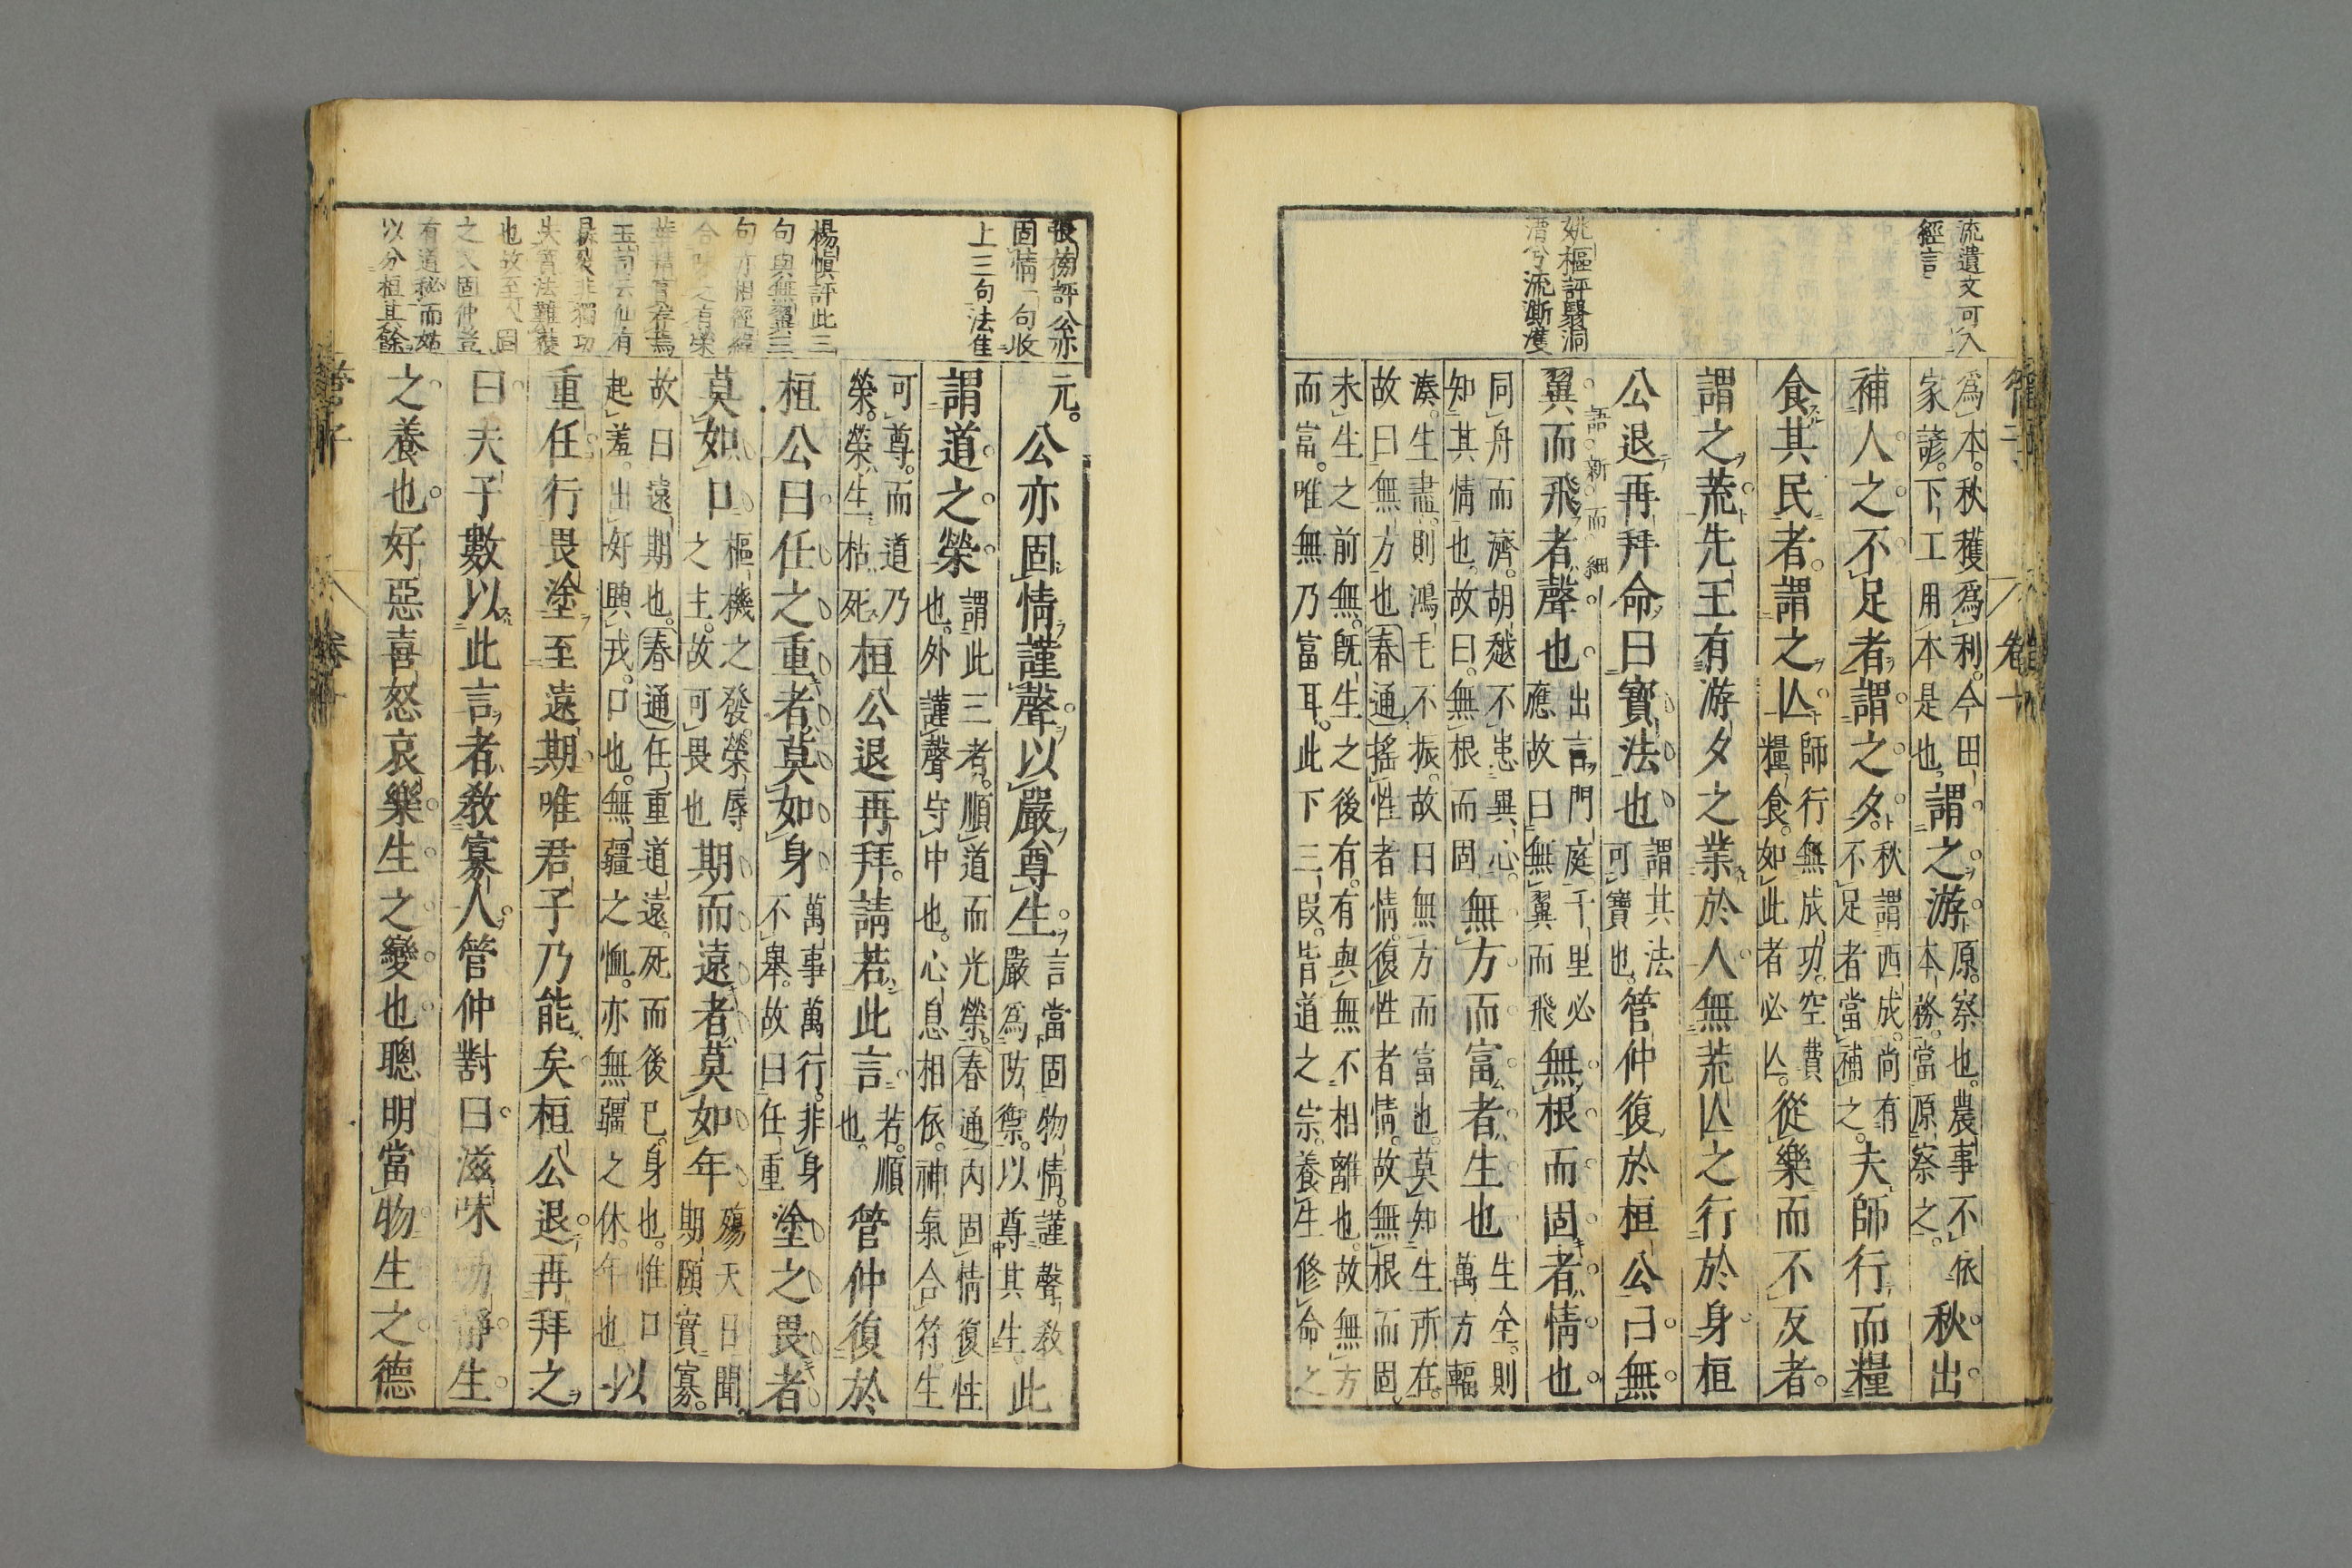 流遺文可入
經言
姚樞評翳洞
流澌濩
爲本秋穫爲利今田謂之游原察也農事不依
家諺下工用本是也本務當原察之秋出
補人之不足者謂之夕秋謂西成尚有不足者當補之夫師行而糧
食其民者謂之亾師行無成功空費糧食如此者必亾從樂而不反者
謂之荒先王有游夕之業於人無荒亾之行於身桓
公退再拜命曰寶法也謂其法可寶也管仲復於桓公曰無
翼而飛者聲也出言門庭千里必應故曰無翼而飛無根而固者情也
語新而細
同舟而濟胡越不患異心知其情也故曰無根而固無方而富者生也生全則萬方輻
湊生盡則鴻毛不振故曰無方而富也莫知生所在
故曰無方也春通搖性者情復性者情故無根而固
未生之前無既生之後有有與無不相離也故無方
而富唯無乃富耳此下三段皆道之宗養生修命之
張榜評公亦
固情一句收
上三句法隹
楊愼評此三
句與無翼三
句亦相經緯
玉
失
也故至
之
有道秘而姑
以分桓其餘
元公亦固情謹聲以嚴尊生言當固物情謹聲教嚴爲防禦以尊其生此
謂道之榮謂此三者順道而光榮春通内固情復性也外謹聲守中也心息相依神氣合符生
可尊而道乃榮榮生枯死桓公退再拜請若此言若順也管仲復於
桓公曰任之重者莫如身萬事萬行非身不舉故曰任重塗之畏者
莫如口樞機之發榮辱之主故可畏也期而遠者莫如年殤夭日聞期頤實寡
故曰遠期也春通任重道遠死而後已身也惟口起羞出好興戎口也無疆之恤亦無疆之休年也以
重任行畏塗至遠期唯君子乃能矣桓公退再拜之
曰夫子數以此言者教寡人管仲對曰滋味動靜生
之養也好惡喜怒哀樂生之變也聰明當物生之德
管子
卷十